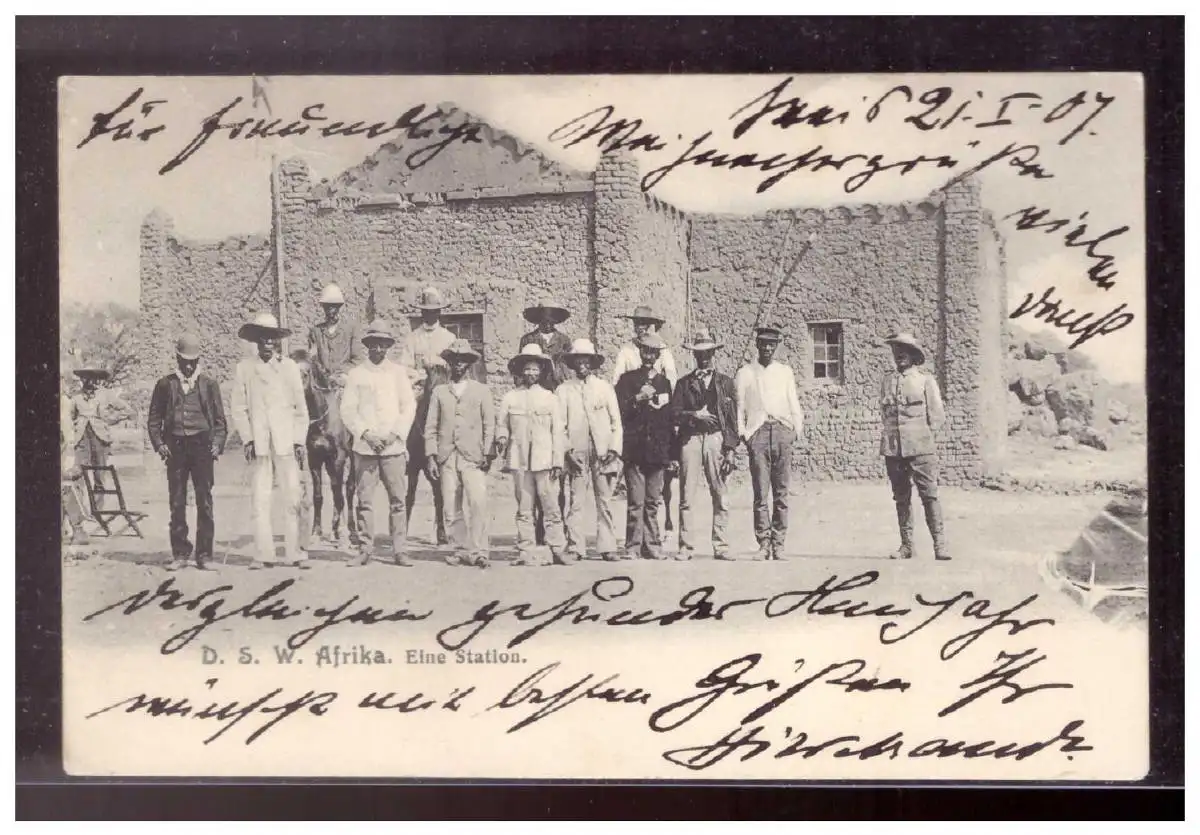 21. I. 07.
für freundliche Weihnachtsgrüße
vielen
Dank
Desgleichen gesundes Neujahr
D. S. W. Afrika. Eine Station.
wünscht mit besten Grüßen Ihr